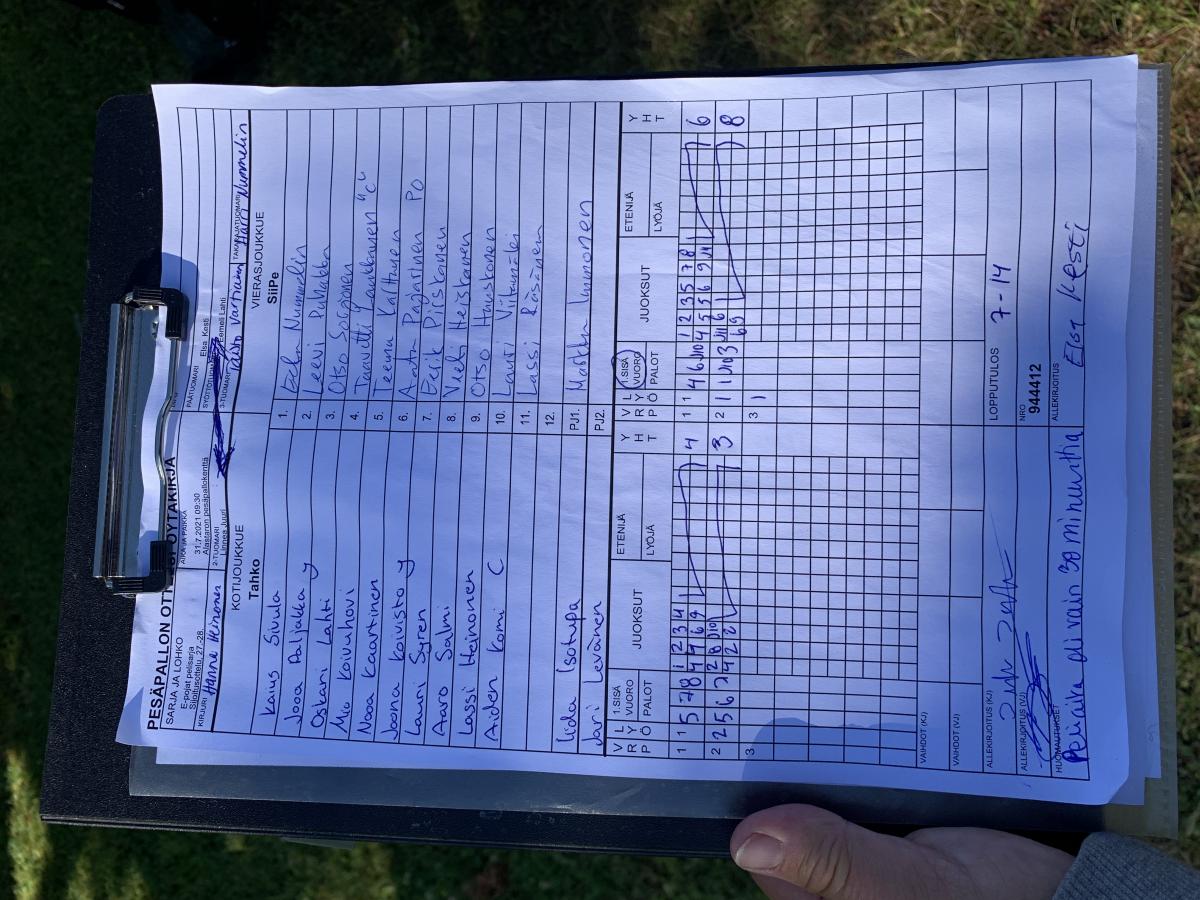 PESÄPALLON OTTELUPÖYTÄKIRJA
SARJA JA LOHKO
E-pojat pelisarja
Sijoitusottelu, 27.-28.
AIKA JA PAIKKA
31.7.2021 09:30
Alastaron pesäpallokenttä
PÄÄTUOMARI Elsa Kesti
SYÖTTÖTUOMARI
KIRJURI Hanne Heinonen
2-TUOMARI
Linnea Juuri
3-TUOMARI Eemeli Lahti
Taisto Vartiainen
TAKARAJATUOMARI
Harri Nummelin
KOTIJOUKKUE
Tahko
VIERASJOUKKUE
SiiPe
Kaius Suvula 1. Eelu Nummelin
Jooa Paljakka y 2. Leevi Puhakka
Oskari Lahti 3. Otso Soronen
Miu Koivuhovi 4. Tuavetti Laukkanen "C"
Nooa Kaartinen 5. Teemu Valtanen
Joona Koivisto y 6. Aatu Pajarinen PO
Lauri Syren 7. Eerik Piiskanen
Aaro Salmi 8. Vieli Heiskanen
Lassi Heinonen 9. Otso Huuskonen
Aiden Komi C 10. Lauri Viitamäki
11. Lassi Räsänen
12.
Iida Isotupa PJ1. Markku Immonen
Jari Levänen PJ2.
V R P L Y Ö 1.SISÄ VUORO PALOT JUOKSUT ETENIJÄ LYÖJÄ Y H T V R P L Y Ö 1.SISÄ VUORO PALOT JUOKSUT ETENIJÄ LYÖJÄ Y H T
1 1 5 7 8 1 2 3 4 4 1 1 4 6 J10 1 2 3 5 7 8 6
4 4 6 9 4 5 5 6 9 J11
2 2 5 6 7 2 8 J10 3 2 1 1 J10 3 J11 6 1 8
4 2 2 6 9
3 3 1
VAIHDOT (KJ)
VAIHDOT (VJ)
ALLEKIRJOITUS (KJ)
LOPPUTULOS 7-14
ALLEKIRJOITUS (VJ)
NRO
944412
HUOMAUTUKSET
Peliaika oli vain 30 minuuttia
ALLEKIRJOITUS
Elsa Kesti